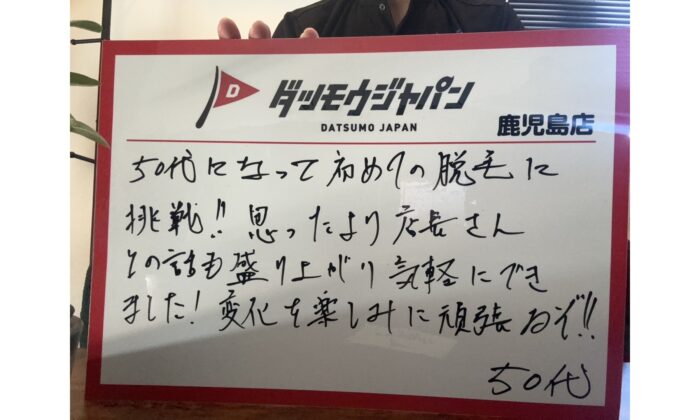 D ダツモウジャパン
DATSUMO JAPAN
鹿児島店
50代になって初めての脱毛に
挑戦!! 思ったより店長さん
との話も盛り上がり気軽にでき
ました! 変化を楽しみに頑張るぞ!!
50代